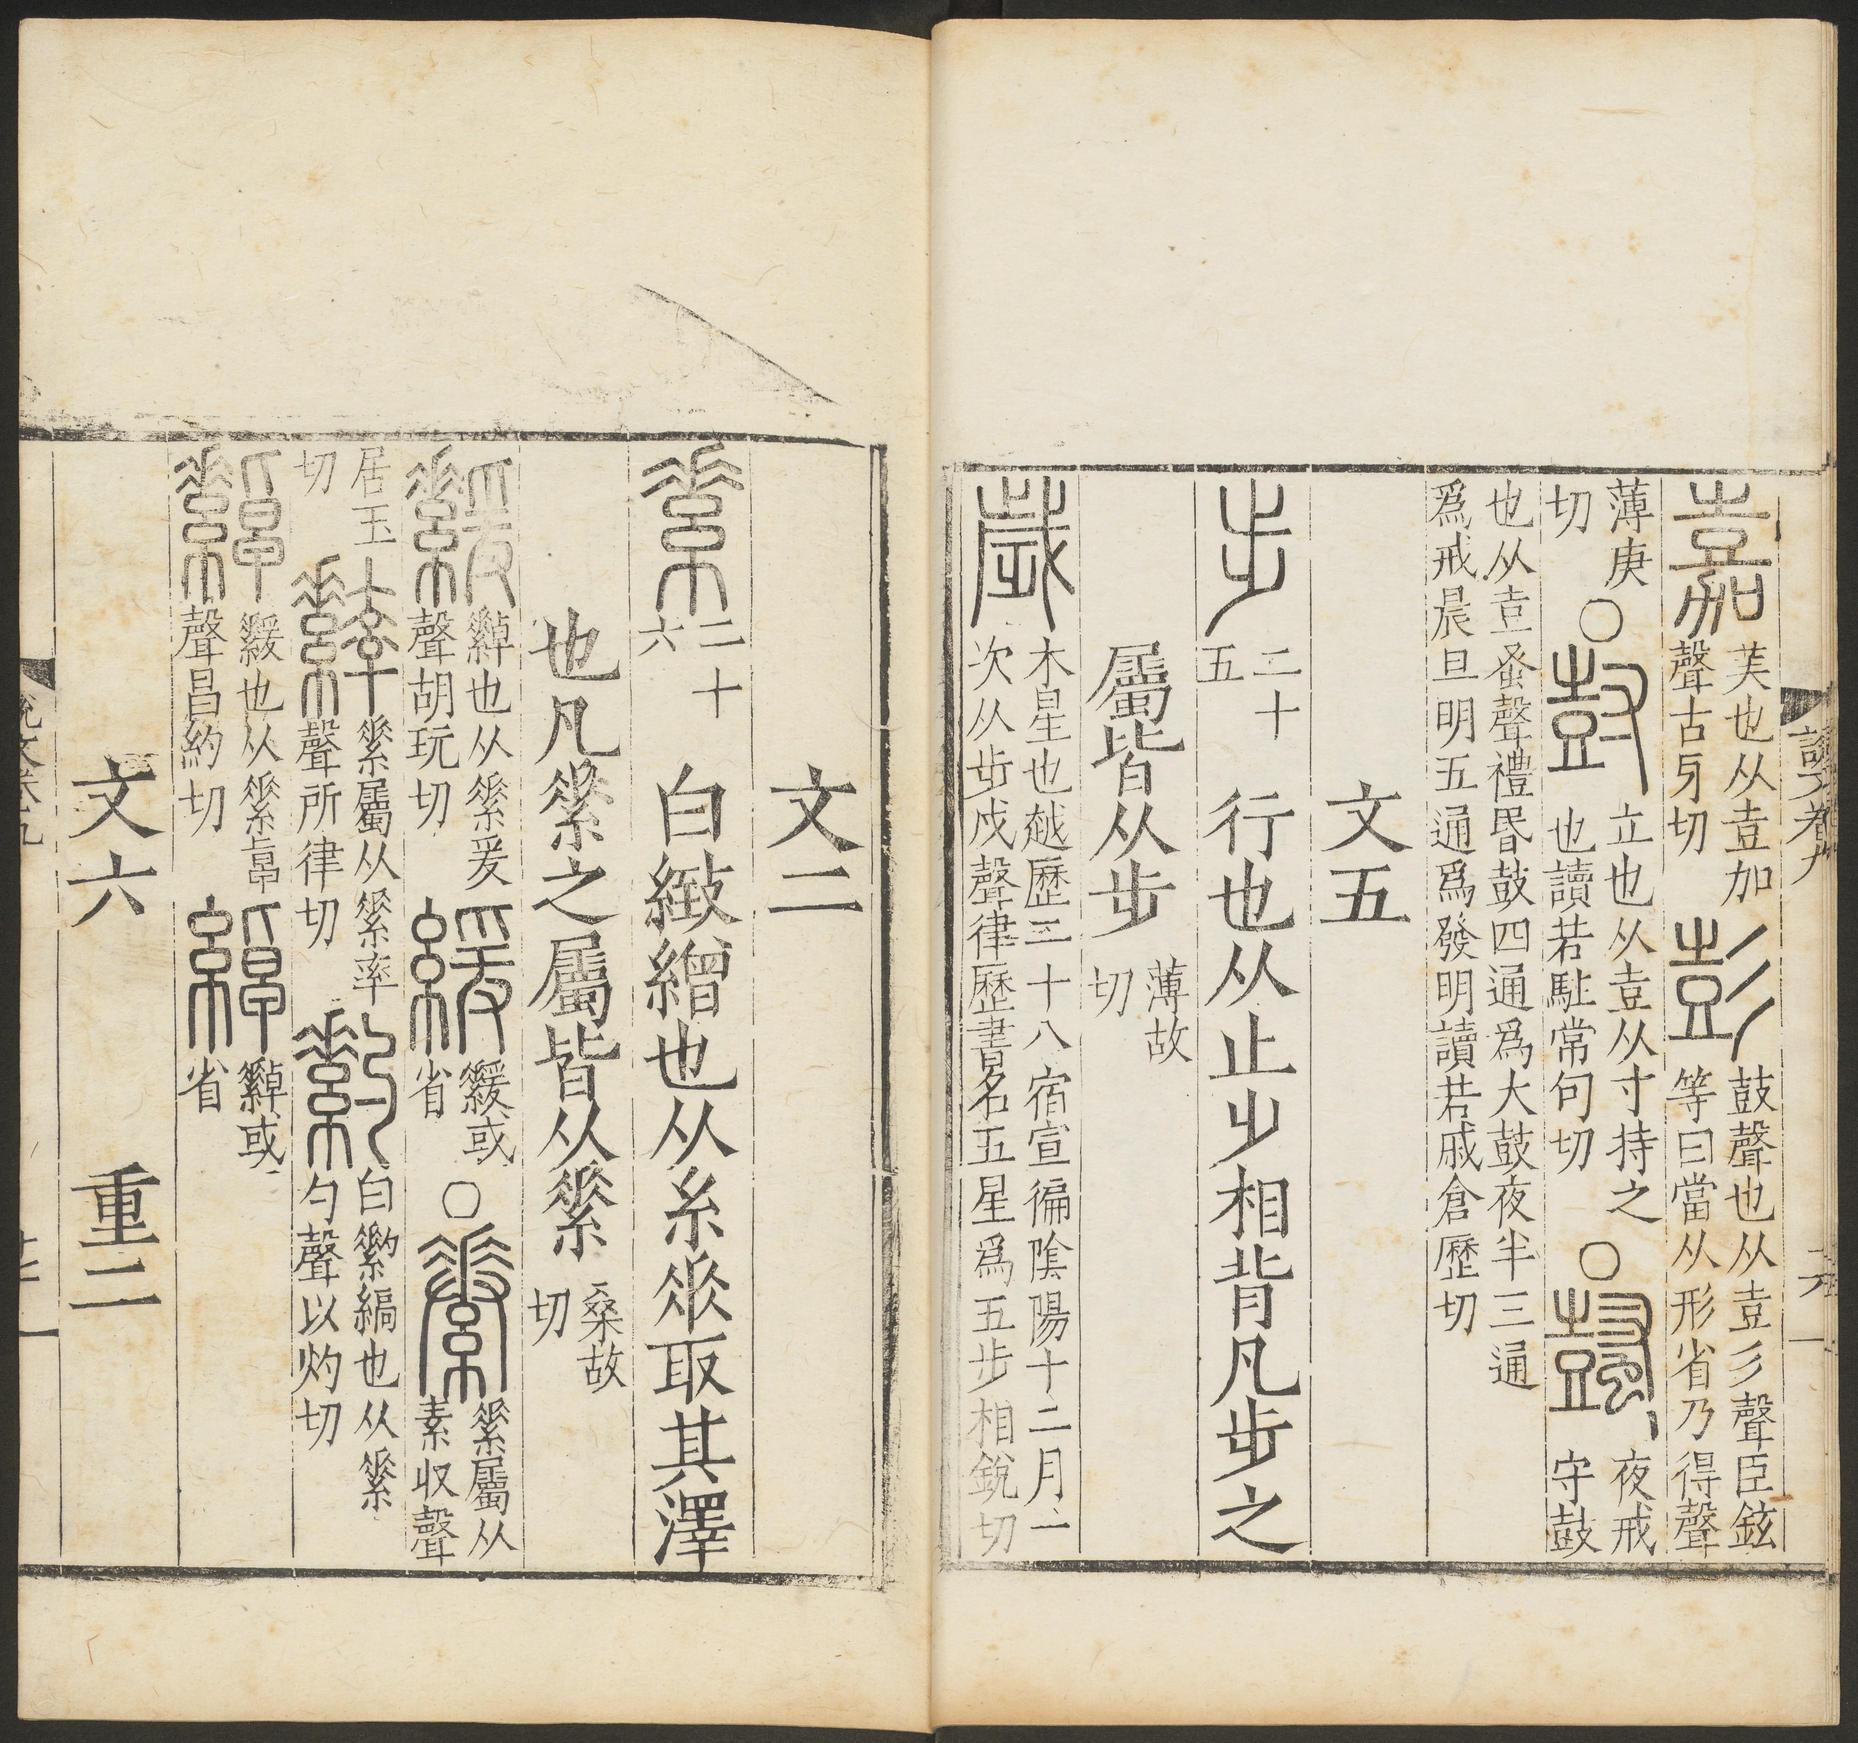 嘉
芺也从壴加
聲古牙切
彭
鼓聲也从壴彡聲臣鉉
等曰當从形省乃得聲
薄庚
切
○
尌
立也从壴从寸持之
也讀若駐常句切
○
夜戒
守鼓
也从壴蚤聲禮昬鼓四通爲大鼓夜半三通
爲戒晨旦明五通爲發明讀若戚倉歷切
文五
步
二十
五
行也从止𣥂相背凡步之
屬皆从步
薄故
切
歲
木星也越歷二十八宿宣徧陰陽十二月一
次从步戌聲律歷書名五星爲五步相銳切
文二
素
二十
六
白緻繒也从糸𠂹取其澤
也凡𦃃之屬皆从𦃃
桑故
切
𦆠也从𦃃爰
聲胡玩切
緩
𦆠或
省
○
𦃃屬从
素収聲
居玉
切
𦃃屬从𦃃率
聲所律切
白𦅼縞也从𦃃
勺聲以灼切
𦆠也从𦃃卓
聲昌約切
綽
𦆠或
省
文六
重二